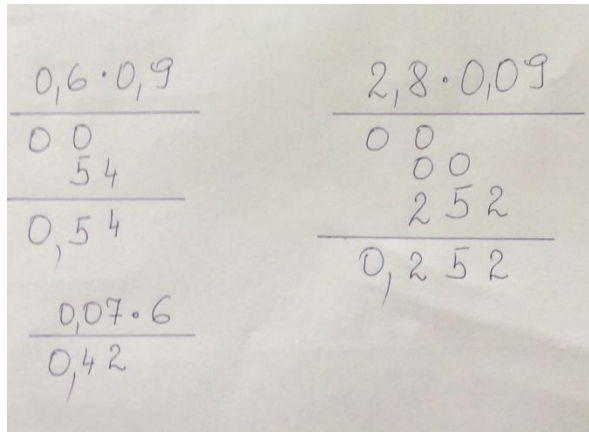 0,6·0,9
0 0
54
0,54
0,07·6
0,42
2,8·0,09
0 0
00
252
0,252